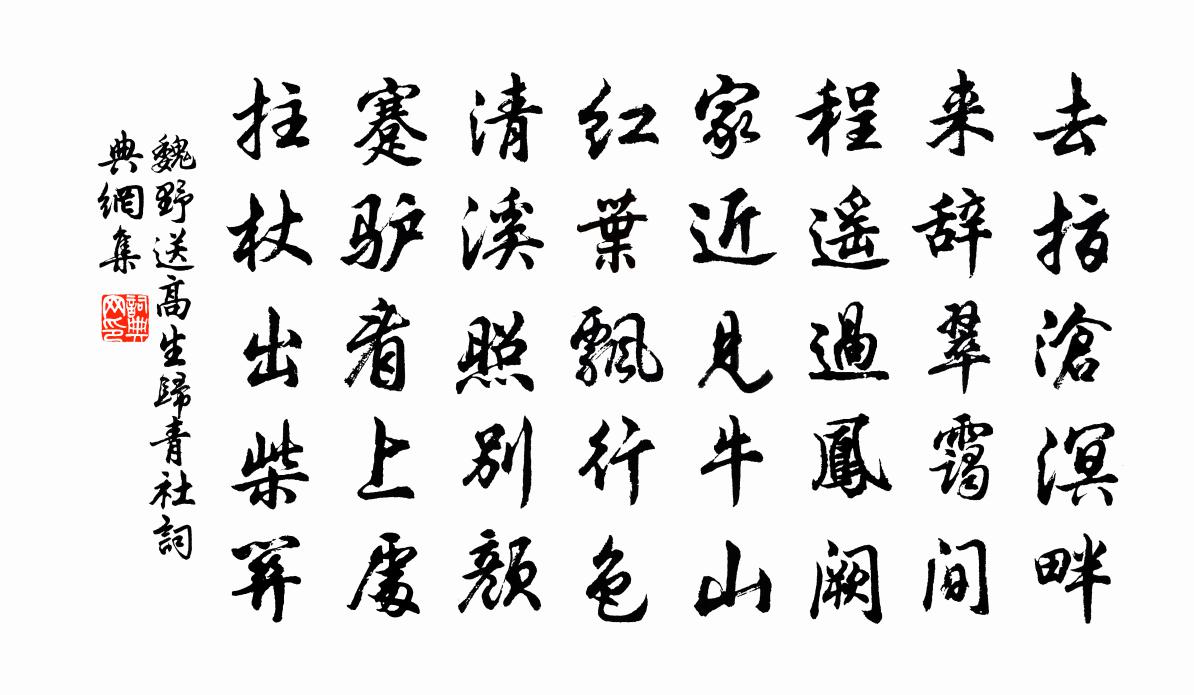 去指滄溟畔
来辞翠靄間
程遥過鳳闕
家近見牛山
红葉飄行色
清溪照別顔
蹇驴看上處
拄杖出柴関
魏野送高生歸青社詞
典網集
詞典
网印